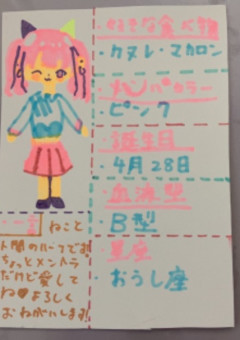 好きな食べ物
・カヌレ・マカロン
メンバーカラー
・ピンク
誕生日
・4月28日
血液型
・B型
星座
・おうし座
一言
ねこと
人間のハーフです!
ちょっとメンヘラ
だけど愛して
ね♥よろしく
おねがいします!